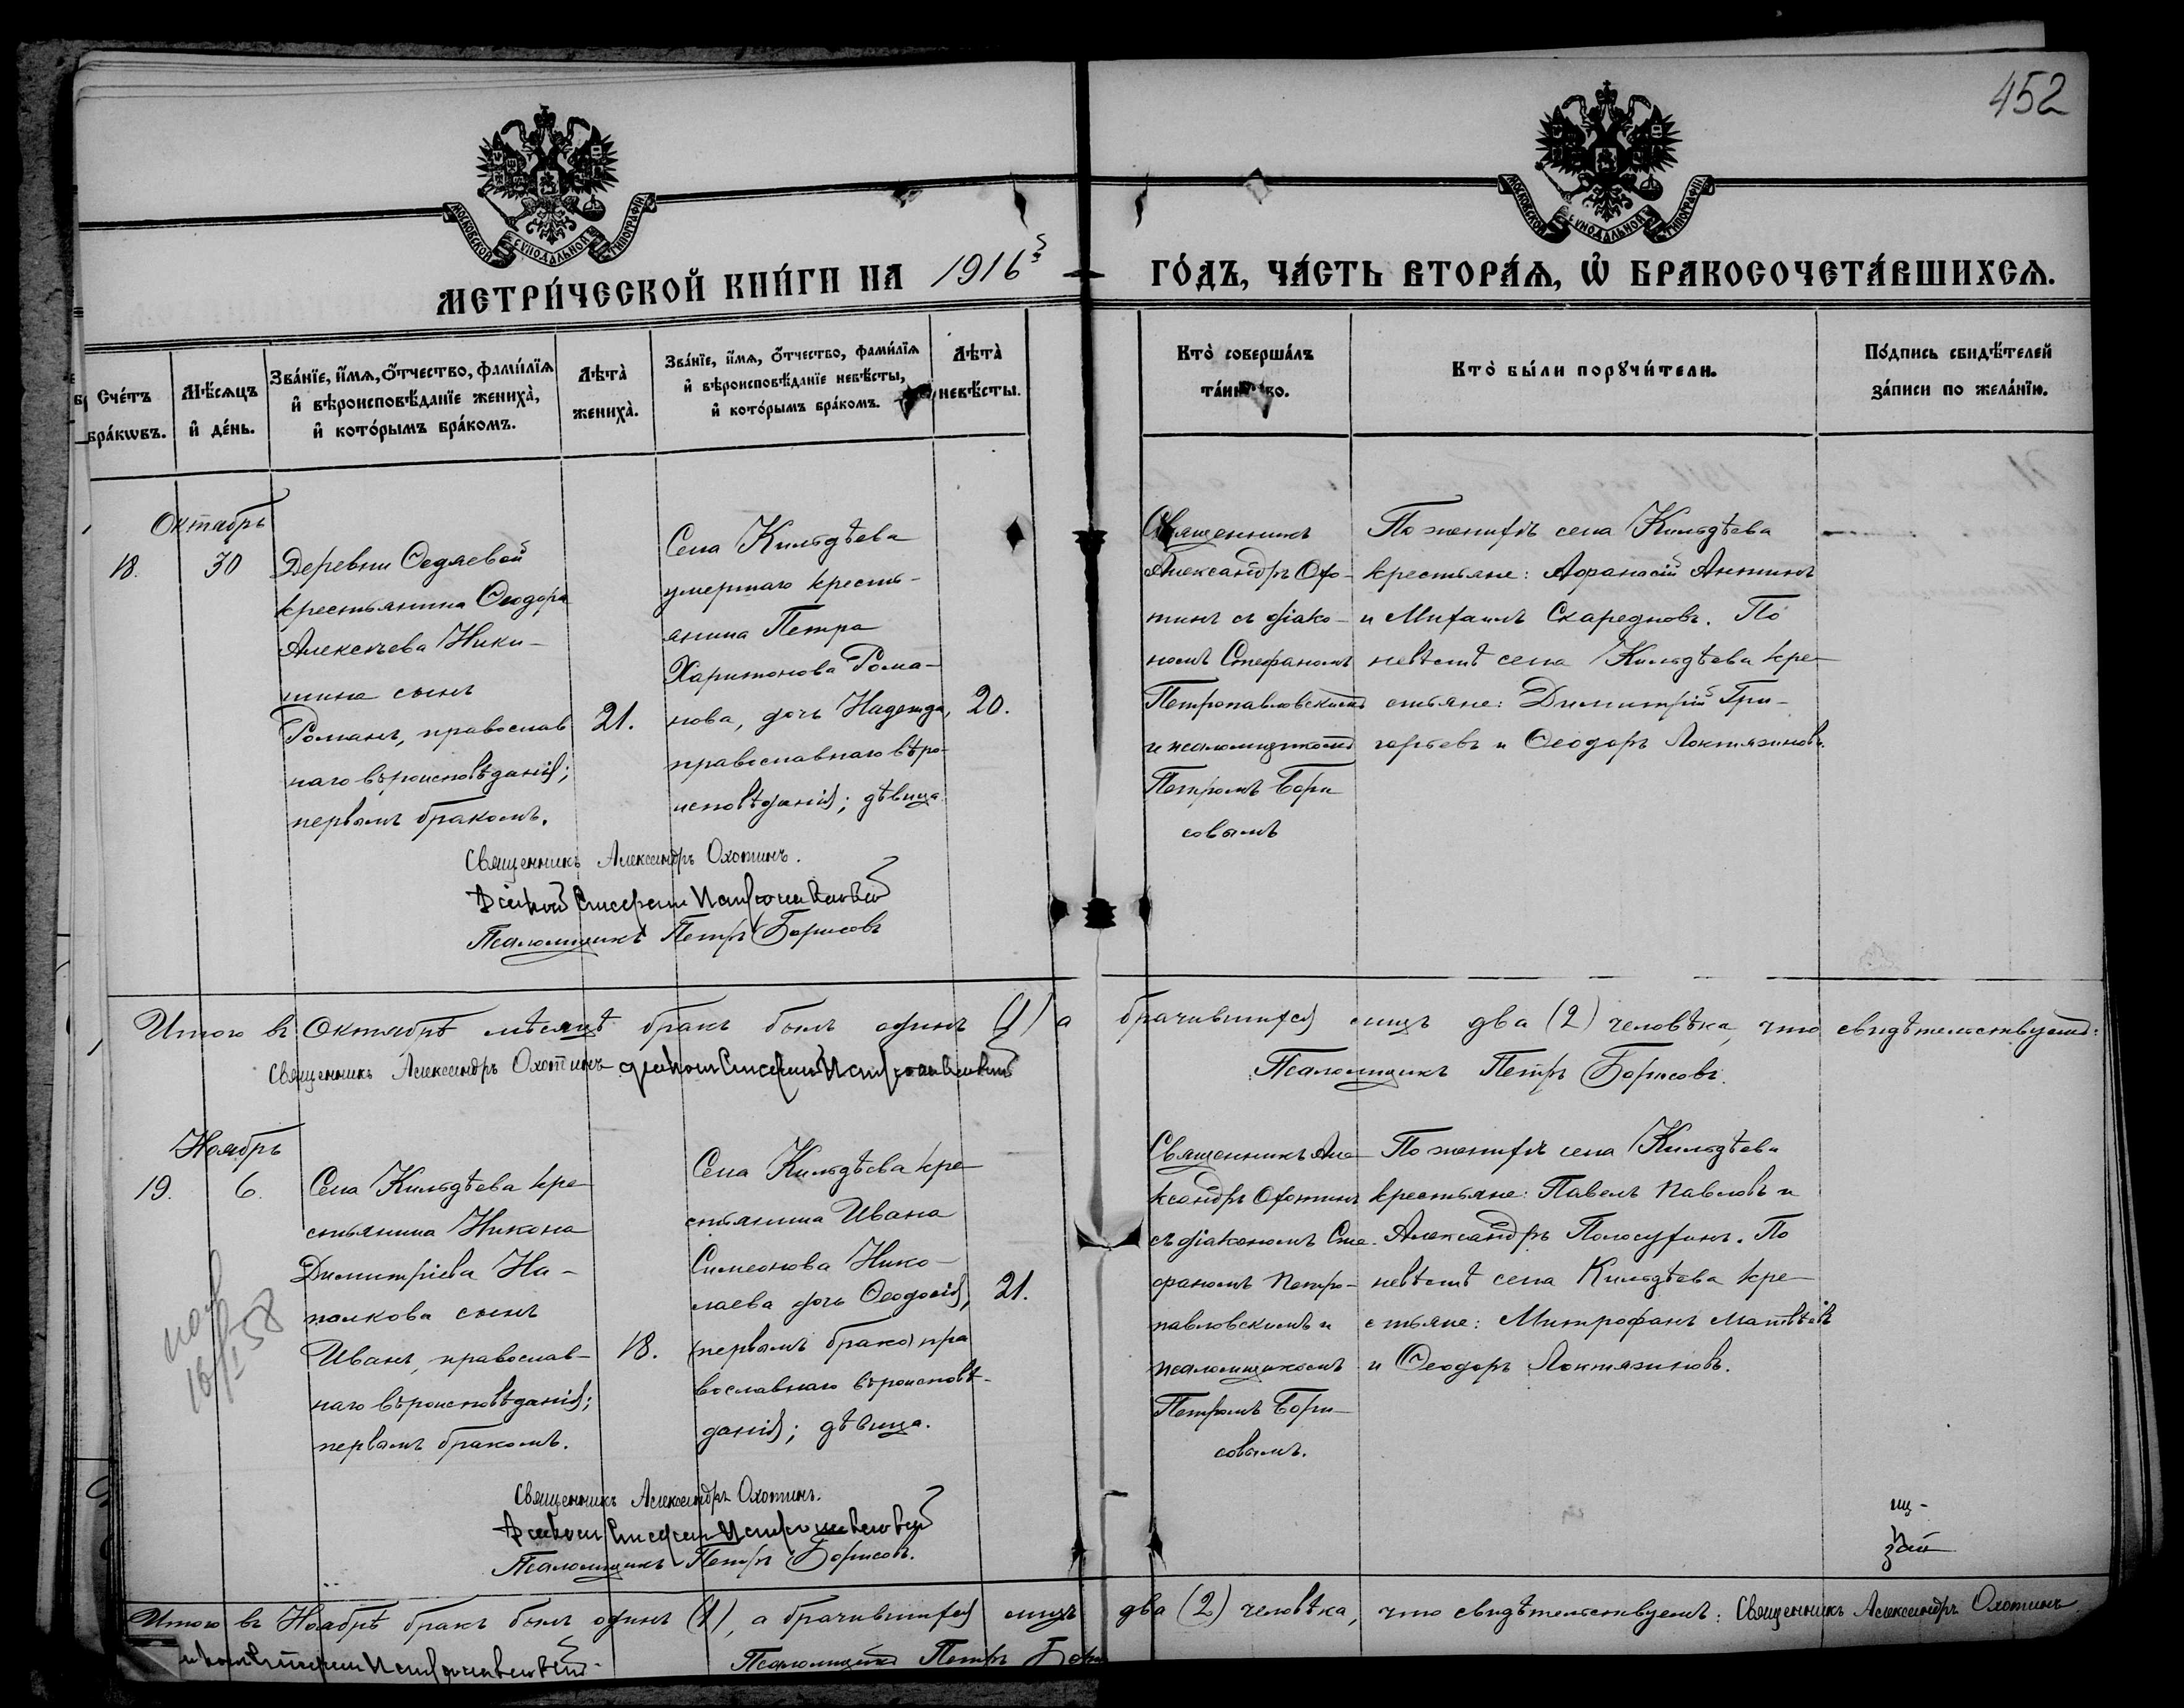 452
МОСКОВСКОЙ СѴНОДАЛЬНОЙ ТИПОГРАФІИ
МОСКОВСКОЙ СѴНОДАЛЬНОЙ ТИПОГРАФІИ
МЕТРИ́ЧЕСКОЙ КНИ́ГИ НА 1916й ГО́ДЪ, ЧА́СТЬ ВТОРА́Ѧ, Ѽ БРАКОСОЧЕТА́ВШИХСѦ.
Сче́тъ бра́кѡвъ.
Мѣ́сѧцъ и҆ де́нь.
Зва́нїе, и҆́мѧ, ѻ҆́тчество, фами́лїѧ
и҆ вѣроисповѣ́данїе жениха̀,
и҆ кото́рымъ бра́комъ.
Лѣта̀
жениха̀.
Зва́нїе, и҆́мѧ, ѻ҆́тчество, фами́лїѧ
и҆ вѣроисповѣ́данїе невѣ́сты,
и҆ кото́рымъ бра́комъ.
Лѣта̀
невѣ́сты.
Кто̀ соверша́лъ
та́инство.
Кто̀ бы́ли порꙋчи́тели.
По́дпись свидѣ́телей
за́писи по жела́нїю.
Октябрь
18.
30
Деревни Седяевой
крестьянина Ѳеодора
Алексѣева Ники-
тина сынъ
Романъ, православ
наго вѣроисповѣданія;
первымъ бракомъ.
21.
Села Кильдѣева
умершаго кресть-
янина Петра
Харитонова Рома-
нова, дочь Надежда,
православнаго вѣро-
исповѣданія; дѣвица.
20.
Священникъ
Александръ Охо-
тинъ съ діако-
номъ Стефаномъ
Петропавловскимъ
и псаломщикомъ
Петромъ Бори
совымъ
По женихѣ села Кильдѣева
крестьяне: Аѳанасій Антинъ
и Михаилъ Скаредновъ. По
невѣстѣ села Кильдѣева кре-
стьяне: Димитрій Гри-
горьевъ и Ѳеодоръ Локтязиновъ.
Священникъ Александръ Охотинъ.
Діаконъ Стефанъ Петропавловскій
Псаломщикъ Петръ Борисовъ
Итого въ Октябрѣ мѣсяцѣ бракъ былъ одинъ (1) а брачившихся лицъ два (2) человѣка, что свидѣтельствуемъ:
Священникъ Александръ Охотинъ діаконъ Стефанъ Петропавловскій Псаломщикъ Петръ Борисовъ.
Ноябрь
19.
6.
Села Кильдѣева кре
стьянина Никона
Димитріева На-
полкова сынъ
Иванъ, православ-
наго вѣроисповѣданія;
первымъ бракомъ.
18.
Села Кильдѣева кре
стьянина Ивана
Симеонова Нико-
лаева дочь Ѳеодосія,
(первымъ брако) пра
вославнаго вѣроисповѣ-
данія; дѣвица.
21.
Священникъ Але-
ксандръ Охотинъ
съ діакономъ Сте-
фаномъ Петро-
павловскимъ и
псаломщикомъ
Петромъ Бори-
совымъ.
По женихѣ села Кильдѣева
крестьяне: Павелъ Павловъ и
Александръ Полосухинъ. По
невѣстѣ села Кильдѣева кре-
стьяне: Митрофанъ Матвѣевъ
и Ѳеодоръ Локтязиновъ.
16/I 58
Священникъ Александръ Охотинъ.
Діаконъ Стефанъ Петропавловскій
Псаломщикъ Петръ Борисовъ.
Итого въ Ноябрѣ бракъ былъ одинъ (1), а брачившихся лицъ два (2) человѣка, что свидѣтельствуемъ: Священникъ Александръ Охотинъ
Стефанъ Петропавловскій Псаломщикъ Петръ Бори